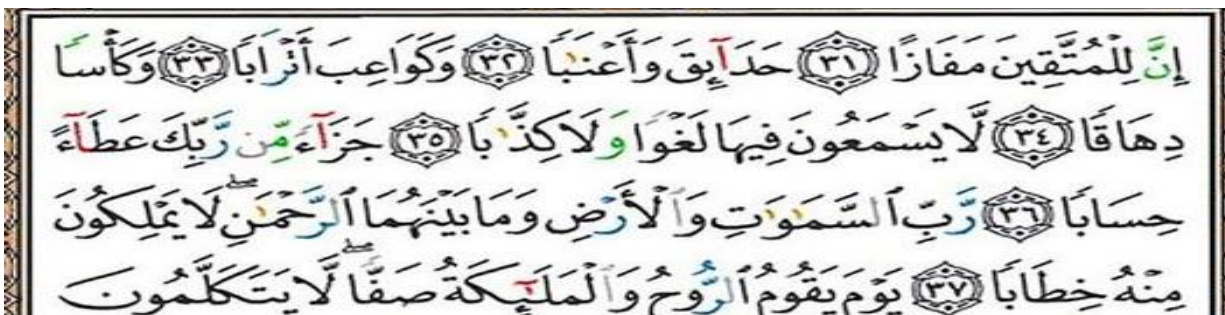 إِنَّ لِلْمُتَّقِينَ مَفَازًا ٣١ حَدَآئِقَ وَأَعْنَٰبًا ٣٢ وَكَوَاعِبَ أَتْرَابًا ٣٣ وَكَأْسًا
دِهَاقًا ٣٤ لَّا يَسْمَعُونَ فِيهَا لَغْوًا وَلَا كِذَّٰبًا ٣٥ جَزَآءً مِّن رَّبِّكَ عَطَآءً
حِسَابًا ٣٦ رَّبِّ ٱلسَّمَٰوَٰتِ وَٱلْأَرْضِ وَمَا بَيْنَهُمَا ٱلرَّحْمَٰنِ ۖ لَا يَمْلِكُونَ
مِنْهُ خِطَابًا ٣٧ يَوْمَ يَقُومُ ٱلرُّوحُ وَٱلْمَلَٰٓئِكَةُ صَفًّا ۖ لَّا يَتَكَلَّمُونَ